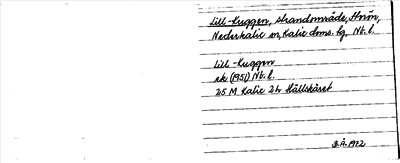 Lill-Kuggen, strandområde, Storön,
Nederkalix sn, Kalix dms. bg. Nb. l.
Lill-Kuggen
ek (1951) Nb. l.
25 M Kalix 2b Hällskäret
B.Å. 1972